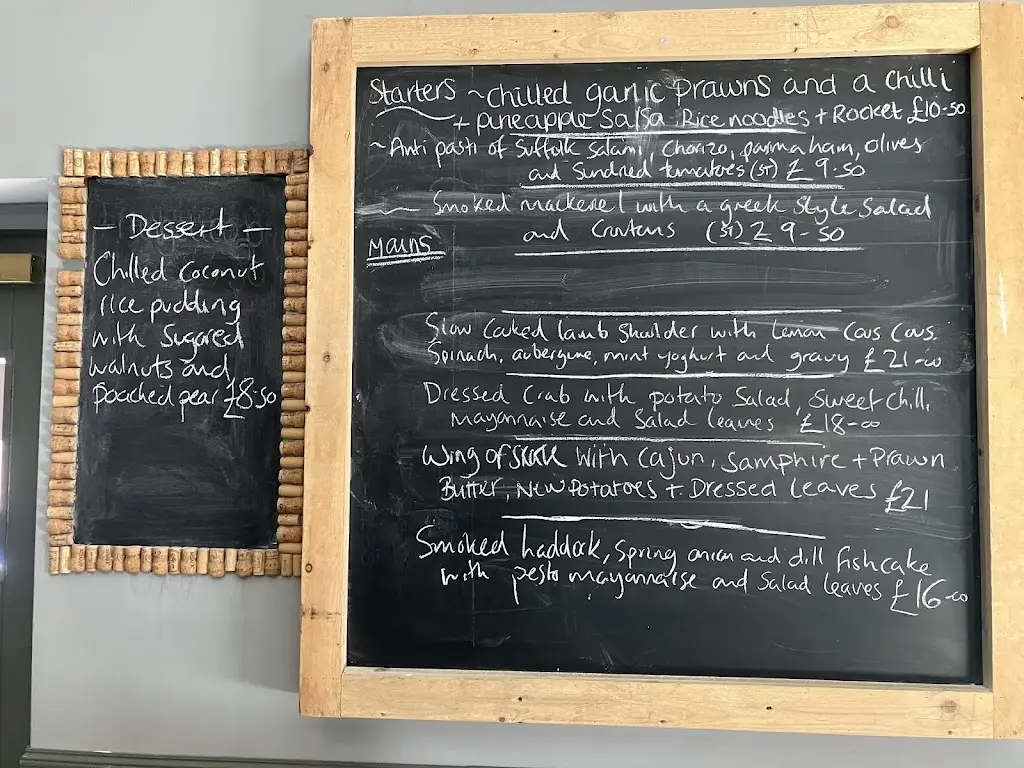 - Dessert -
Chilled coconut
rice pudding
with sugared
walnuts and
poached pear £8.50
Starters ~ chilled garlic prawns and a chilli
+ pineapple salsa Rice noodles + Rocket £10-50
~ Anti pasti of Suffolk Salami, Chorizo, parma ham, olives
and Sundried tomatoes (ST) £9.50
Smoked mackerel with a greek style Salad
and Croutons (ST) £9-50
Mains
Slow Cooked lamb Shoulder with Lemon Cous Cous.
Spinach, aubergine, mint yoghurt and gravy £21-00
Dressed Crab with potato Salad, Sweet Chilli,
mayonnaise and Salad leaves £18-00
Wing of Skate with Cajun, Samphire + Prawn
Butter, New Potatoes + Dressed Leaves £21
Smoked haddock, Spring onion and dill fishcake
with pesto mayonnaise and Salad leaves £16-00